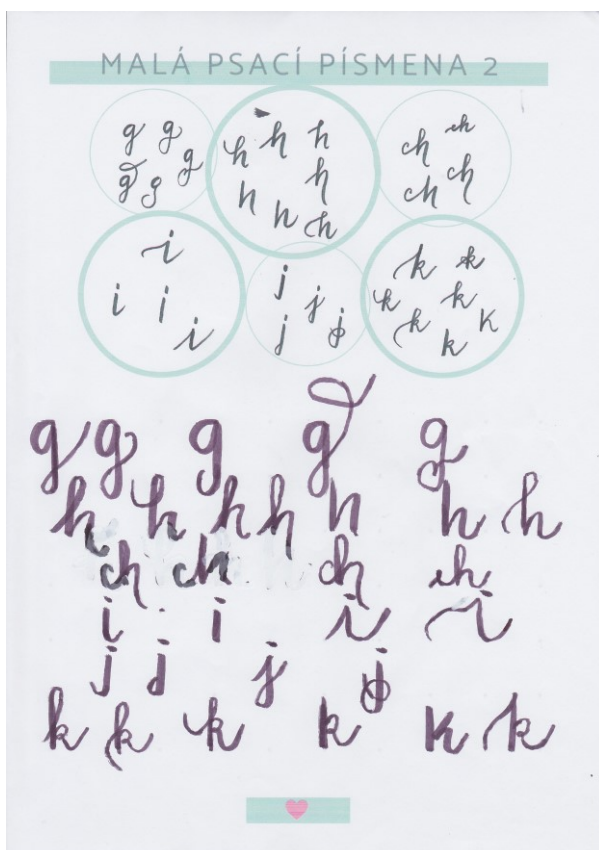 MALÁ PSACÍ PÍSMENA 2
g g g g g
h h h h h h h
ch ch ch ch ch
i i i i
j j j j
k k k k k k k
g g g g g
h h h h h h h
ch ch ch ch
i i i i
j j j j
k k k k k k